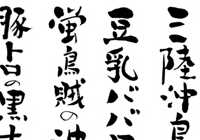 三陸沖
豆乳ババ
蛍烏賊の
豚トロの黒